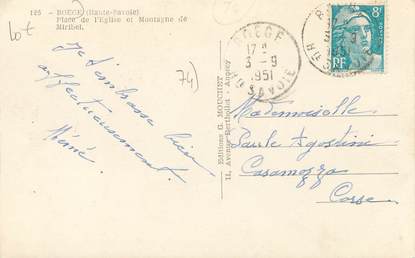 125 - BOËGE (Haute-Savoie)
Place de l'Eglise et Montagne de
Miribel.
lot
74)
Je t'embrasse bien
affectueusement.
Mémé.
Editions G. MOUCHET
11, Avenue Berthollet - Annecy
BOËGE
17 H
3 - 9
1951
HTE SAVOIE
8F
RF
Mademoiselle
Paule Agostini
Casamozza
Corse